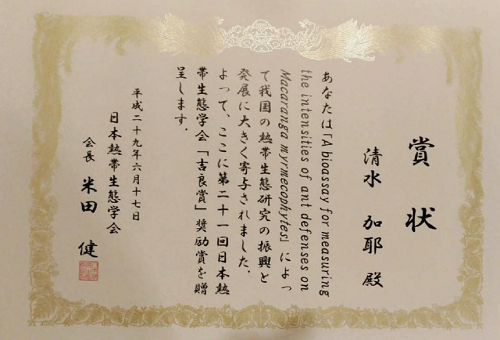 賞状
清水 加耶 殿
あなたは「A bioassay for measuring
the intensities of ant defenses on
Macaranga myrmecophytes」によっ
て我国の熱帯生態研究の振興と
発展に大きく寄与されました.
よって、ここに第二十一回日本熱
帯生態学会「吉良賞」奨励賞を贈
呈します.
平成二十九年六月十七日
日本熱帯生態学会
会長 米田 健